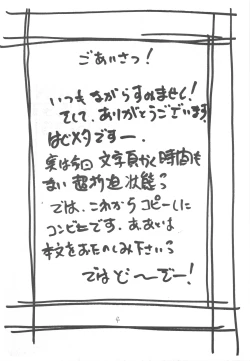 ごあいさつ!
いつもながらすみません!
そして、ありがとうございます
はじメタですー。
実は今回文字頁がく時間も
ない超切迫状態っ
では、これからコピーしに
コンビニです。ああとは
本文をおたのしみ下さいっ
ではどーぞー!
4